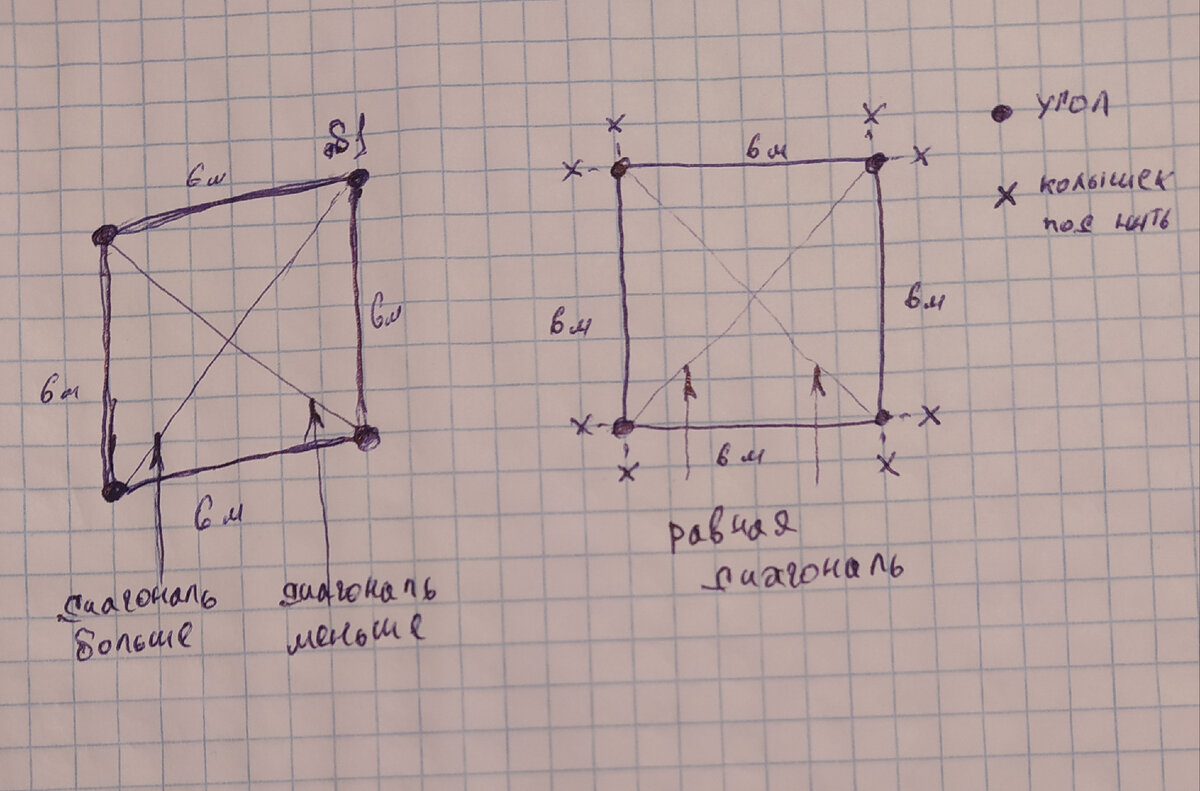 6м
6м
6м
6м
диагональ
больше
диагональ
меньше
6м
6м
6м
6м
равная
диагональ
угол
x колышек
под нить